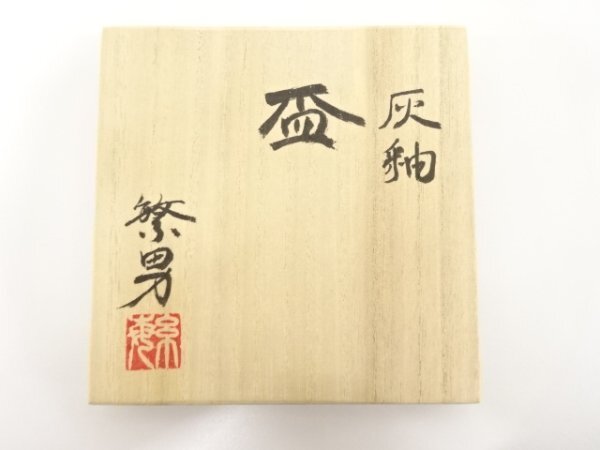 灰釉
盃
繁男